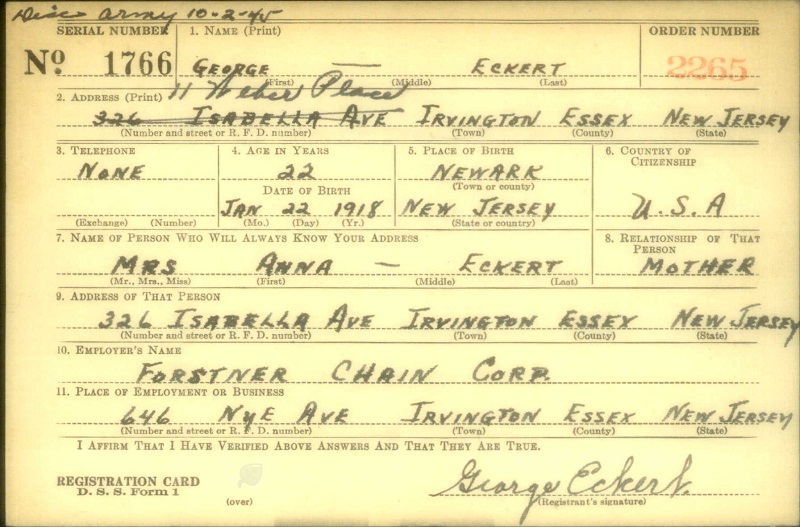 Disc Army 10-2-45
SERIAL NUMBER 1. NAME (Print) ORDER NUMBER
No 1766 GEORGE — ECKERT 2265
(First) (Middle) (Last)
11 Weber Place
2. ADDRESS (Print)
326 ISABELLA AVE IRVINGTON ESSEX NEW JERSEY
(Number and street or R. F. D. number) (Town) (County) (State)
3. TELEPHONE 4. AGE IN YEARS 5. PLACE OF BIRTH 6. COUNTRY OF CITIZENSHIP
NONE 22 NEWARK
(Town or county)
DATE OF BIRTH
JAN 22 1918 NEW JERSEY U.S.A
(Exchange) (Number) (Mo.) (Day) (Yr.) (State or country)
7. NAME OF PERSON WHO WILL ALWAYS KNOW YOUR ADDRESS 8. RELATIONSHIP OF THAT PERSON
MRS ANNA — ECKERT MOTHER
(Mr., Mrs., Miss) (First) (Middle) (Last)
9. ADDRESS OF THAT PERSON
326 ISABELLA AVE IRVINGTON ESSEX NEW JERSEY
(Number and street or R. F. D. number) (Town) (County) (State)
10. EMPLOYER'S NAME
FORSTNER CHAIN CORP.
11. PLACE OF EMPLOYMENT OR BUSINESS
646 NYE AVE IRVINGTON ESSEX NEW JERSEY
(Number and street or R. F. D. number) (Town) (County) (State)
I AFFIRM THAT I HAVE VERIFIED ABOVE ANSWERS AND THAT THEY ARE TRUE.
REGISTRATION CARD
D. S. S. Form 1
(over)
George Eckert.
(Registrant's signature)